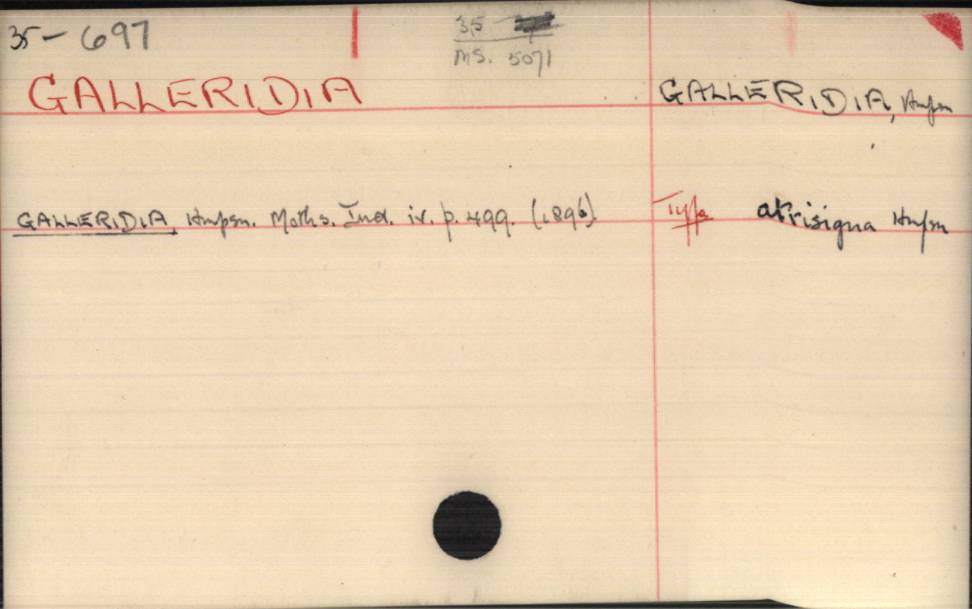 35-697
35
MS. 5071
GALLERIDIA
GALLERIDIA, Hmpsn
GALLERIDIA, Hmpsn. Moths. Ind. iv. p. 499. (1896).
Type atrisigna Hmpsn